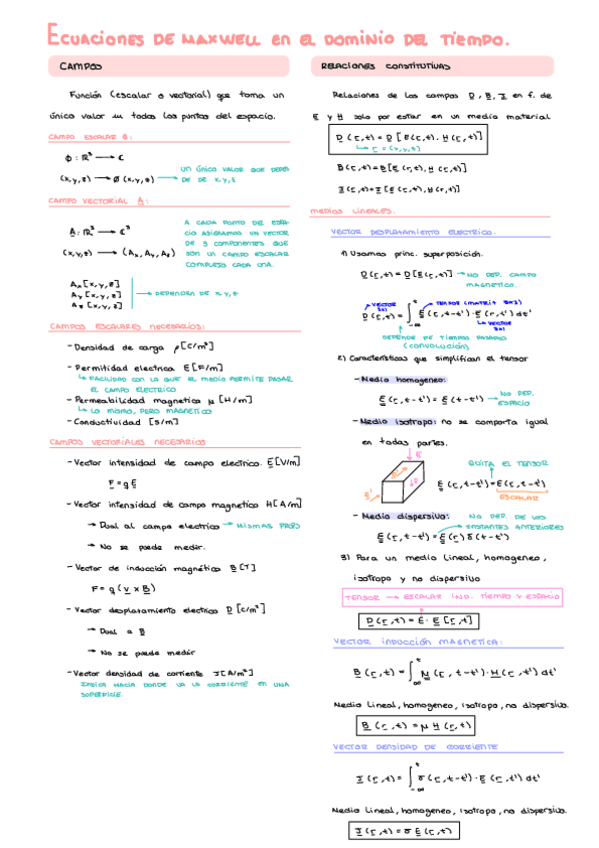 Ecuaciones de Maxwell en el dominio del tiempo.
CAMPOS
Función (escalar o vectorial) que toma un
único valor en todos los puntos del espacio.
CAMPO ESCALAR Φ:
Φ : R³ → C
(x,y,z) → Φ (x,y,z) → UN ÚNICO VALOR QUE DEPEN
DE DE x,y,z
CAMPO VECTORIAL A:
A : R³ → C³
(x,y,z) → (Ax, Ay, Az)
A CADA PUNTO DEL ESPA-
CIO ASIGNAMOS UN VECTOR
DE 3 COMPONENTES QUE
SON UN CAMPO ESCALAR
COMPLETO CADA UNA.
Ax [x,y,z]
Ay [x,y,z]
Az [x,y,z]
→ DEPENDEN DE x,y,z
CAMPOS ESCALARES NECESARIOS:
- Densidad de carga ρ [C/m³]
- Permitidad electrica E [F/m]
↳ FACILIDAD CON LA QUE EL MEDIO PERMITE PASAR
EL CAMPO ELECTRICO
- Permeabilidad magnetica μ [H/m]
↳ LO MISMO, PERO MAGNETICO
- Conductividad [S/m]
CAMPOS VECTORIALES NECESARIOS
- Vector intensidad de campo electrico. E [V/m]
F = q E
- Vector intensidad de campo magnetico H [A/m]
→ Dual al campo electrico → MISMAS PROPS
→ No se puede medir.
- Vector de inducción magnética B [T]
F = q (v x B)
- Vector desplazamiento electrico D [C/m²]
→ Dual a B
→ No se puede medir
- Vector densidad de corriente J [A/m²]
INDICA HACIA DONDE VA LA CORRIENTE EN UNA
SUPERFICIE.
RELACIONES CONSTITUTIVAS
Relaciones de los campos D, B, J en f. de
E y H solo por estar en un medio material
D (r,t) = D [E(r,t), H (r,t)]
↳ r = (x,y,z)
B (r,t) = B [E (r,t), H (r,t)]
J (r,t) = J [E (r,t), H (r,t)]
MEDIOS LINEALES.
VECTOR DESPLAZAMIENTO ELECTRICO.
1) Usamos princ. superposición.
D (r,t) = D [E (r,t)] → NO DEP. CAMPO
MAGNETICO.
VECTOR 3x1
TENSOR (MATRIZ 3x3)
D (r,t) = ∫ E (r,t-t') · E (r,t') dt'
↳ VECTOR 3x1
DEPENDE DE TIEMPOS PASADOS
(CONVOLUCIÓN)
2) Características que simplifican el tensor
- Medio homogeneo:
E (r,t-t') = E (t-t') → NO DEP. ESPACIO
- Medio isotropo: no se comporta igual
en todas partes.
QUITA EL TENSOR
E (r,t-t') = E (r,t-t')
ESCALAR
- Medio dispersivo: NO DEP. DE LOS
INSTANTES ANTERIORES
E (r,t-t') = E (r) δ (t-t')
3) Para un medio lineal, homogeneo,
isotropo y no dispersivo
TENSOR → ESCALAR IND. TIEMPO Y ESPACIO
D (r,t) = E · E [r,t]
VECTOR INDUCCIÓN MAGNETICA:
B (r,t) = ∫ μ (r,t-t') · H (r,t') dt'
Medio Lineal, homogeneo, isotropo, no dispersivo.
B (r,t) = μ H (r,t)
VECTOR DENSIDAD DE CORRIENTE
J (r,t) = ∫ σ (r,t-t') · E (r,t') dt'
Medio Lineal, homogeneo, isotropo, no dispersivo.
J (r,t) = σ E (r,t)